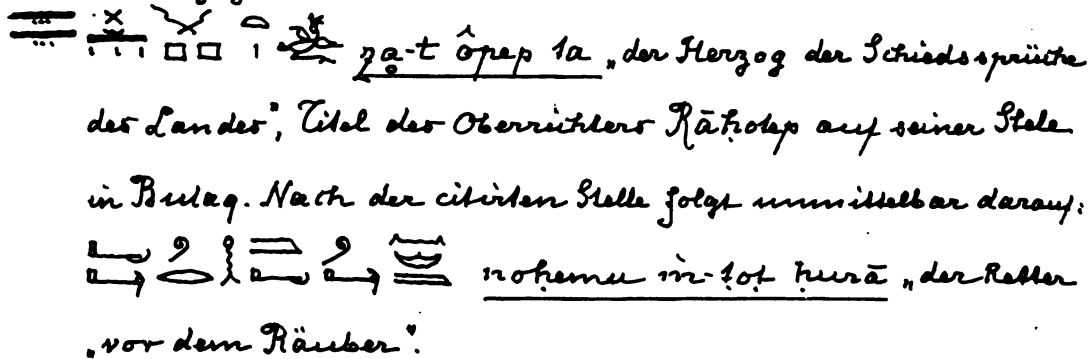 za-t ôpep ta „der Herzog der Schiedssprüche
des Landes", Titel des Oberrichters Rāḥotep auf seiner Stele
in Bulaq. Nach der citirten Stelle folgt unmittelbar darauf:
noḥemu m-tot ḥurā „der Retter
„vor dem Räuber".